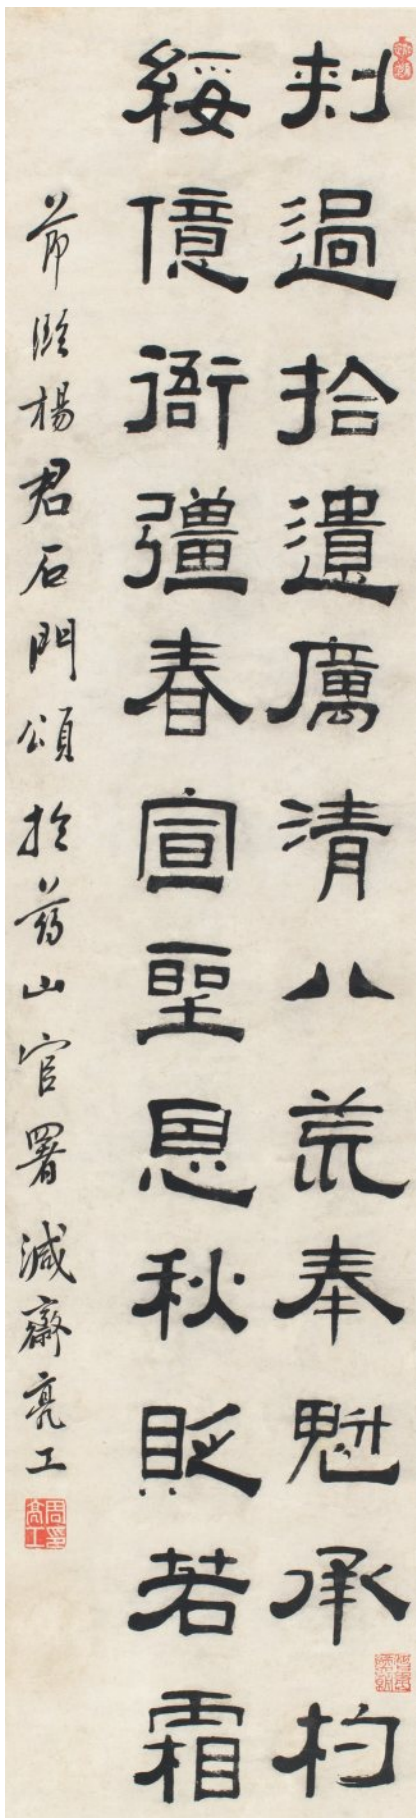 刺過拾遺厲清八荒奉魁承杓
綏億衙彊春宣聖恩秋貶若霜
節臨楊君石門頌於山官署減齋亮工
周印亮工